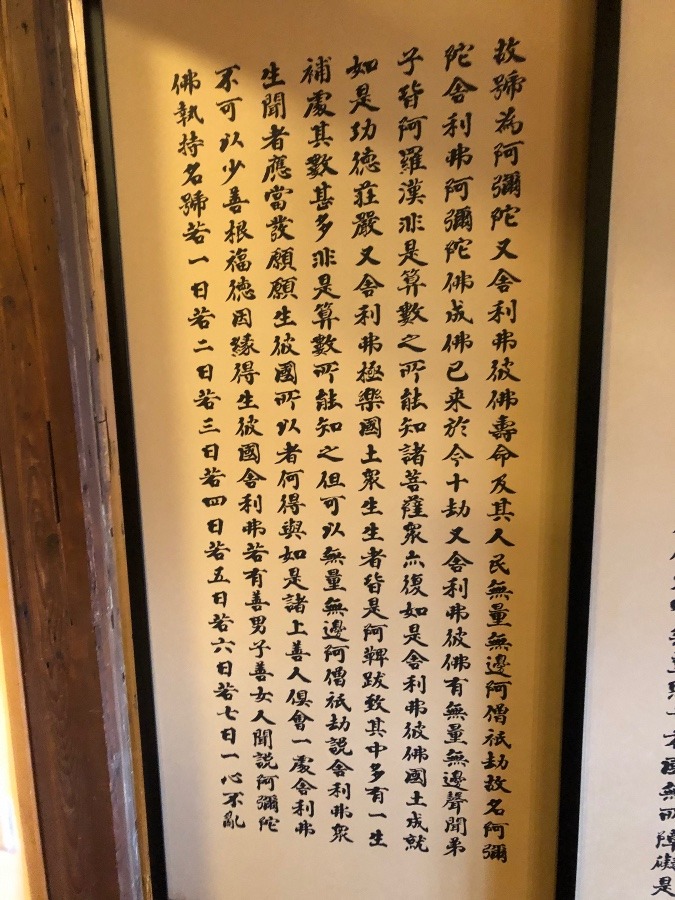 十方國無所障礙是
故號為阿彌陀又舎利弗彼佛壽命及其人民無量無邊阿僧祇劫故名阿彌
陀舎利弗阿彌陀佛成佛已来於今十劫又舎利弗彼佛有無量無邊聲聞弟
子皆阿羅漢非是算數之所能知諸菩薩衆亦復如是舎利弗彼佛國土成就
如是功德荘嚴又舎利弗極樂國土衆生生者皆是阿鞞跋致其中多有一生
補處其數甚多非是算數所能知之但可以無量無邊阿僧祇劫説舎利弗衆
生聞者應當發願願生彼國所以者何得與如是諸上善人俱會一處舎利弗
不可以少善根福德因緣得生彼國舎利弗若有善男子善女人聞説阿彌陀
佛執持名號若一日若二日若三日若四日若五日若六日若七日一心不亂